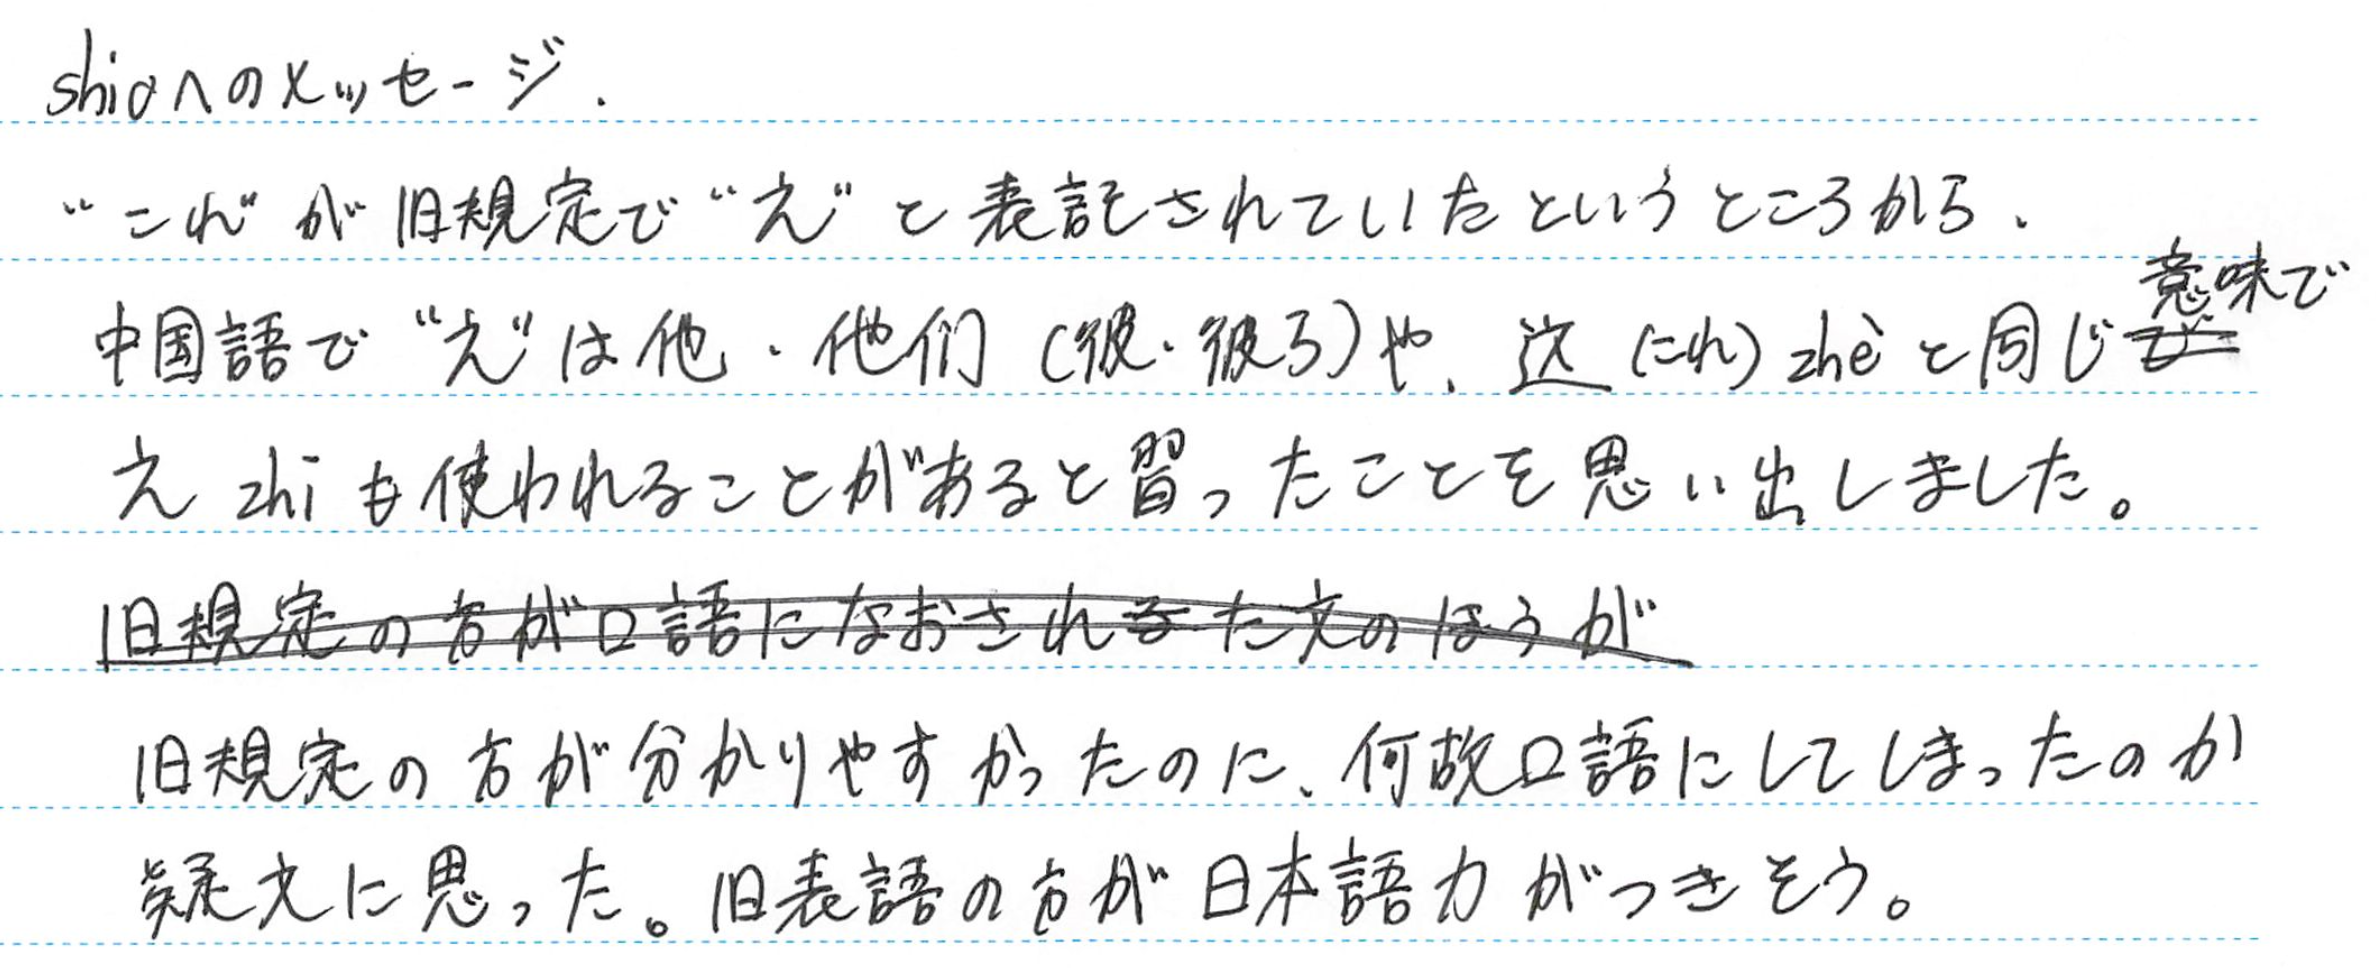 shioへのメッセージ.
"これ"が旧規定で"之"と表記されていたというところから、
中国語で"之"は他・他们(彼・彼ら)や、这(これ)zhèと同じ意味で
之 zhiも使われることがあると習ったことを思い出しました。
旧規定の方が口語になおされるた文のほうが
旧規定の方が分かりやすかったのに、何故口語にしてしまったのか
疑文に思った。旧表語の方が日本語力がつきそう。